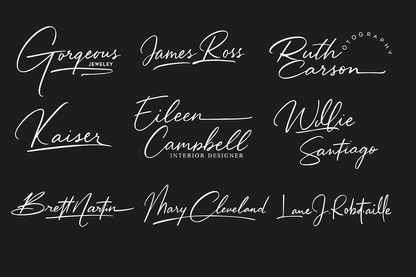 Gorgeous
JEWELEY
James Ross
Ruth
Carson
OTOGRAPHY
Kaiser
Eileen
Campbell
INTERIOR DESIGNER
Willie
Santiago
Brett Martin
Mary Cleveland
Lane J. Robitaille